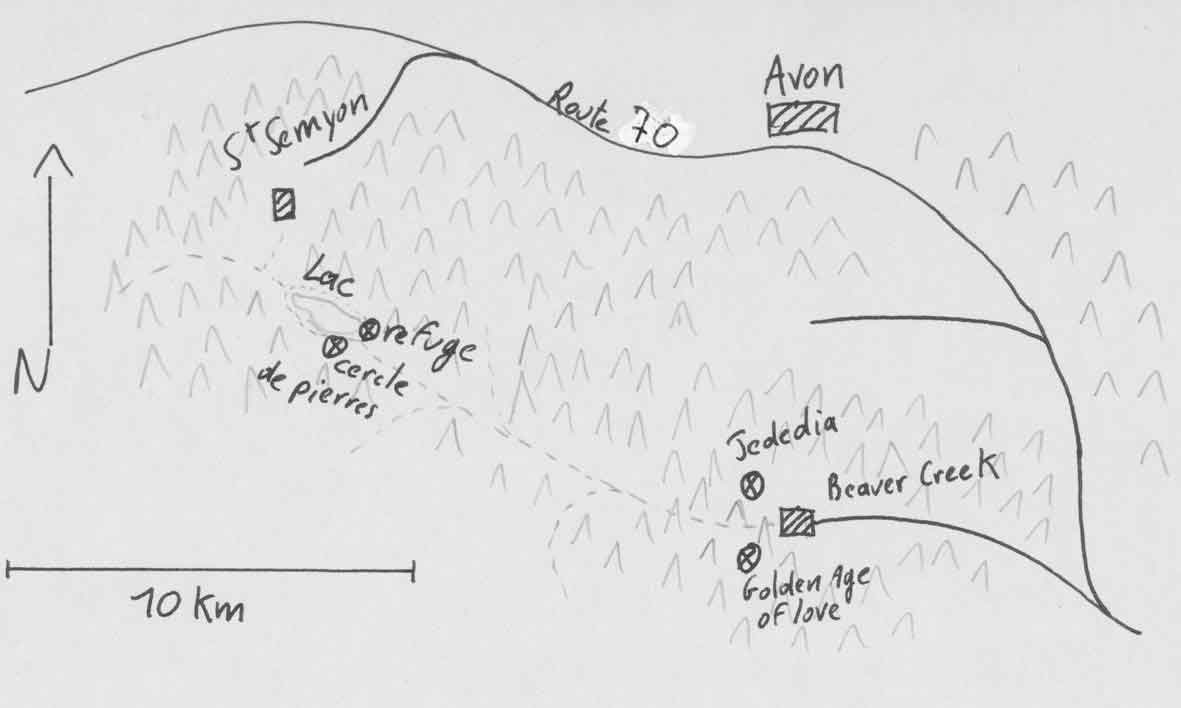 Avon
Route 70
St Semyon
Lac
refuge
N
cercle
de pierres
Jededia
Beaver Creek
Golden Age
of love
10 Km